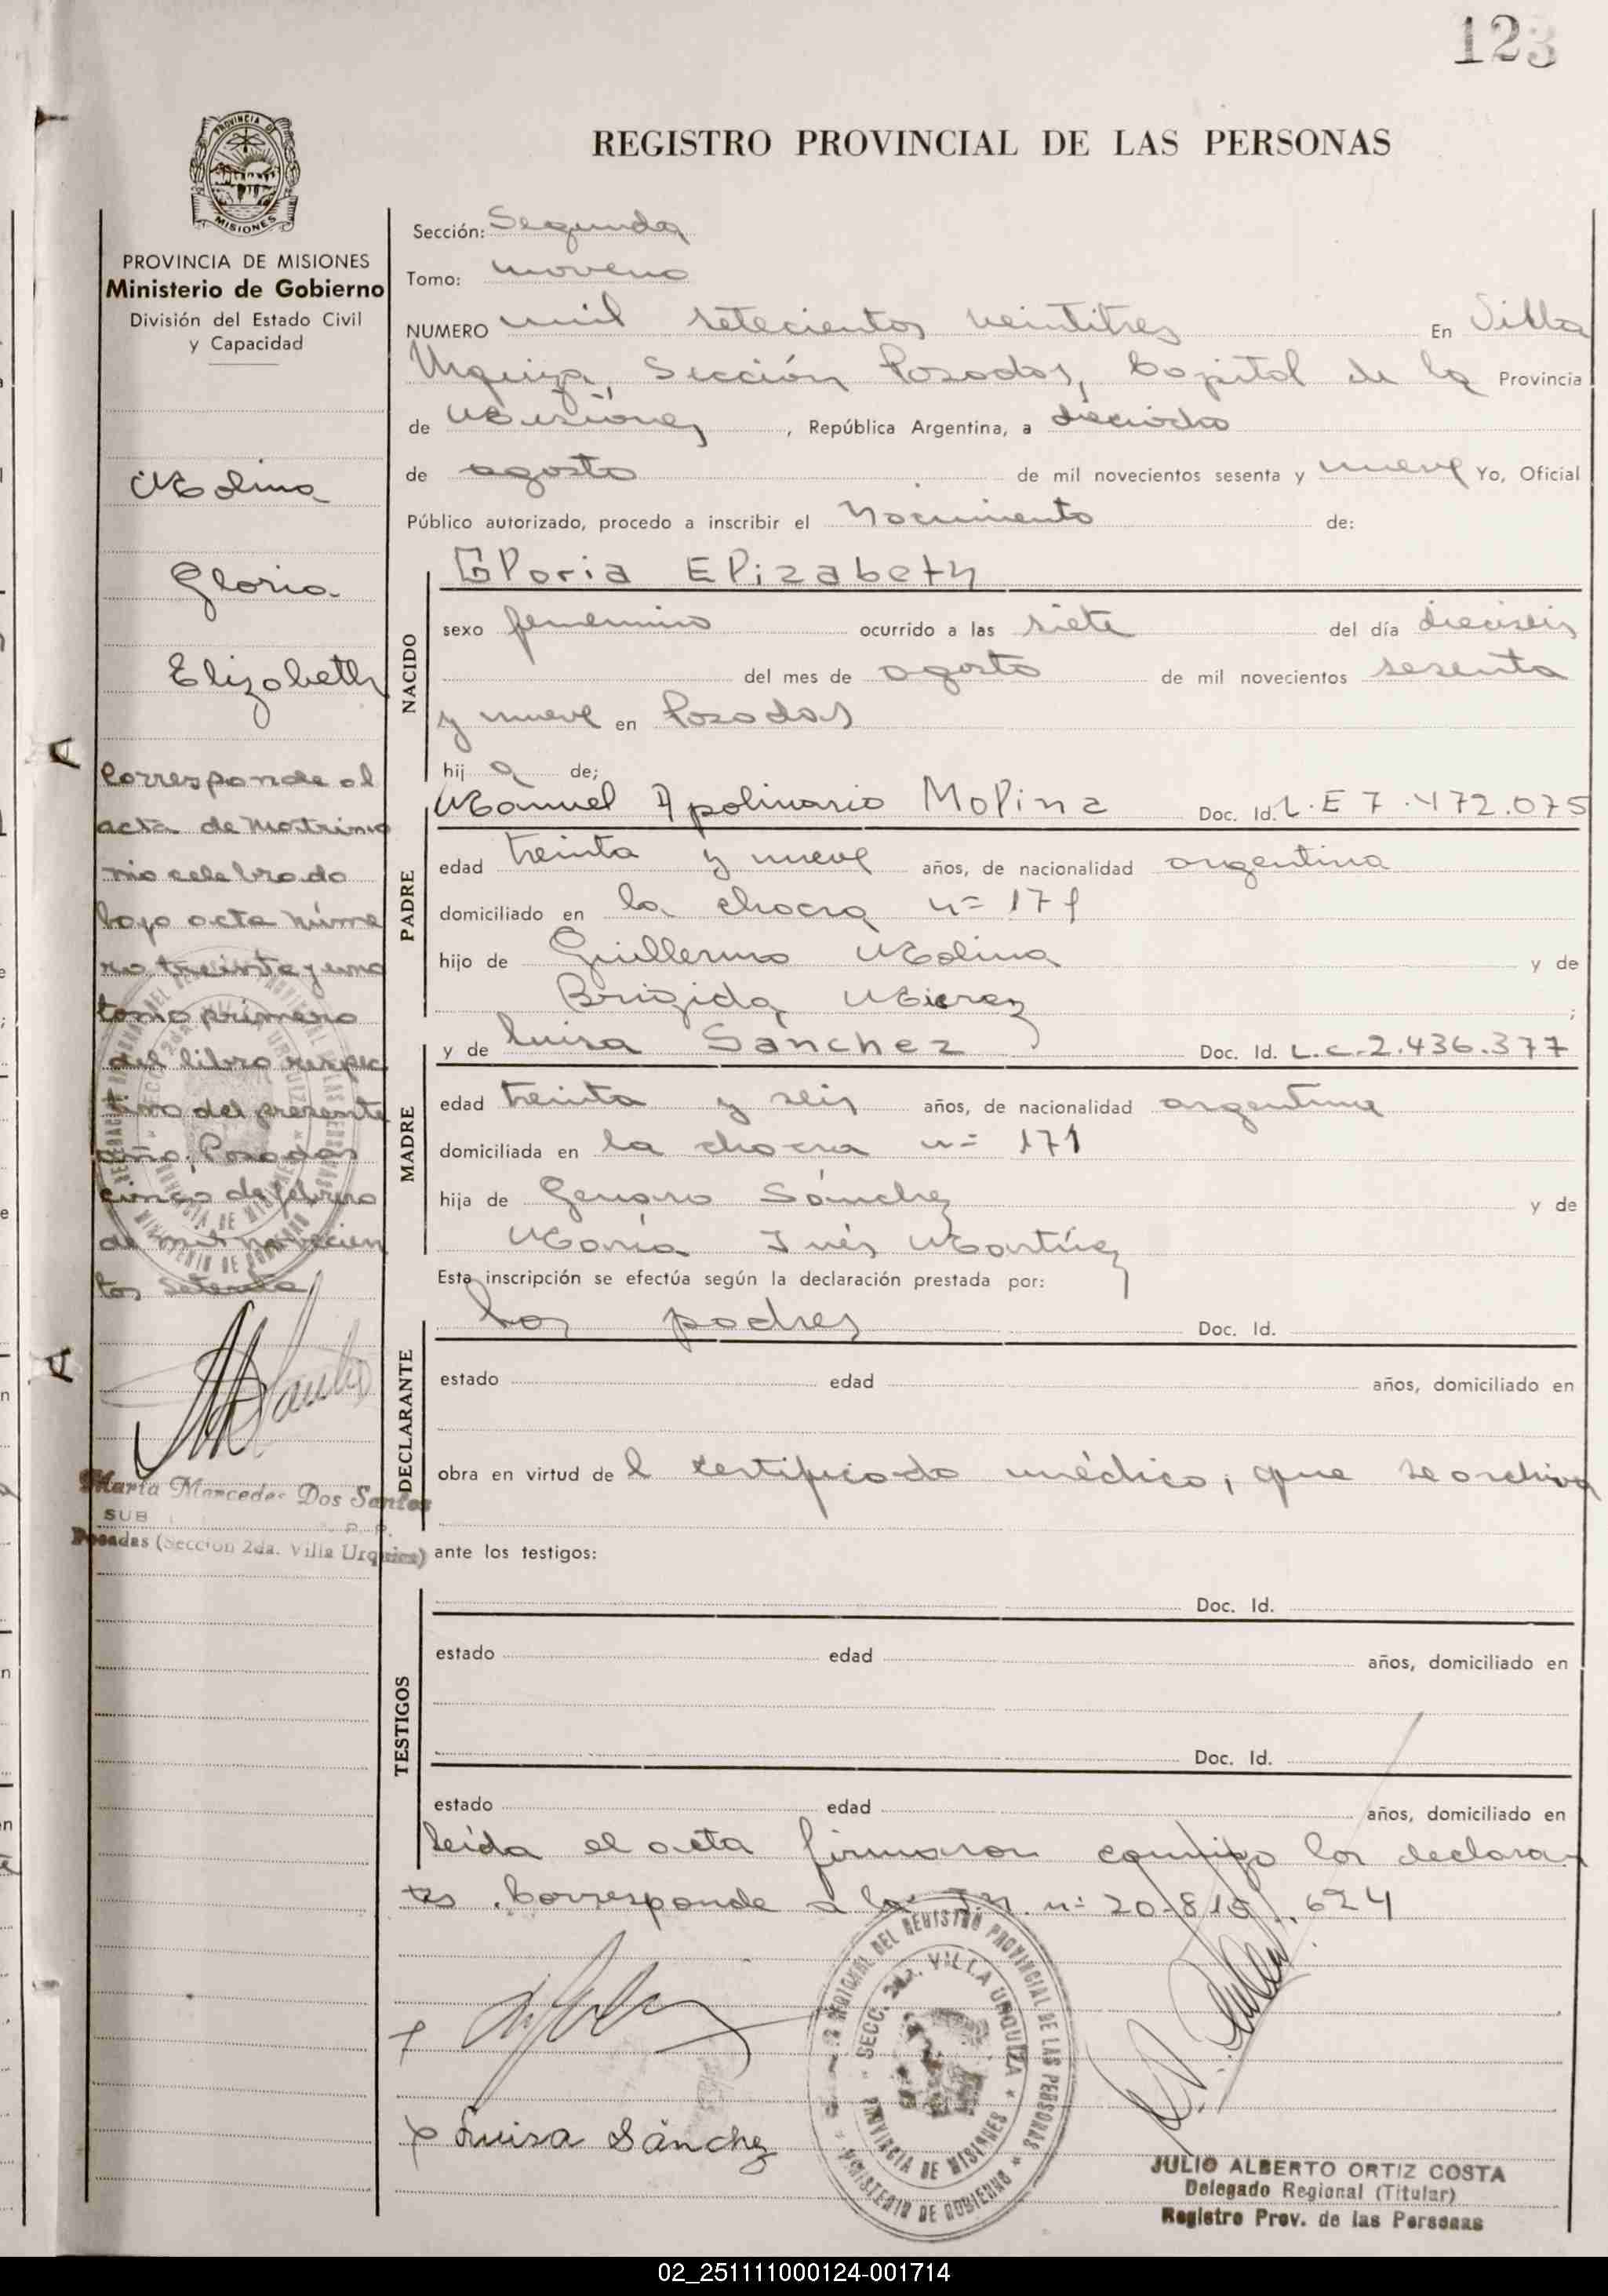 123
REGISTRO PROVINCIAL DE LAS PERSONAS
PROVINCIA DE
MISIONES
PROVINCIA DE MISIONES
Ministerio de Gobierno
División del Estado Civil
y Capacidad
Molina
Gloria
Elizabeth
Corresponde al
acta de Matrimo
nio celebrado
bajo acta núme
ro treinta y uno
tomo primero
del libro respec
tivo del presente
año, Posadas
cinco de febrero
de mil novecien
tos setenta
Marta Mercedes Dos Santos
SUB
Posadas (Sección 2da. Villa Urquiza)
Sección: Segunda
Tomo: noveno
NUMERO mil setecientos veintitres En Villa
Urquiza, Sección Posadas, Capital de la Provincia
de Misiones, República Argentina, a dieciocho
de agosto de mil novecientos sesenta y nueve Yo, Oficial
Público autorizado, procedo a inscribir el Nacimiento de:
NACIDO
Gloria Elizabeth
sexo femenino ocurrido a las siete del día dieciseis
del mes de agosto de mil novecientos sesenta
y nueve en Posadas
hij a de;
PADRE
Manuel Apolinario Molina Doc. Id. L.E 7.472.075
edad treinta y nueve años, de nacionalidad argentina
domiciliado en la chacra n= 171
hijo de Guillermo Molina y de
Brigida ;
MADRE
y de Luisa Sánchez Doc. Id. L.C.2.436.377
edad treinta y seis años, de nacionalidad argentina
domiciliada en la chacra n= 171
hija de Genaro Sánchez y de
María Inés Martínez
Esta inscripción se efectúa según la declaración prestada por:
DECLARANTE
los padres Doc. Id.
estado edad años, domiciliado en
obra en virtud de l certificado médico, que se archiva
ante los testigos:
TESTIGOS
Doc. Id.
estado edad años, domiciliado en
Doc. Id.
estado edad años, domiciliado en
Leída el acta firmaron conmigo los declaran
tes. Corresponde a la n= 20.819.624
REGIONAL DEL REGISTRO PROVINCIAL DE LAS PERSONAS
SECC. 2da. VILLA URQUIZA
PROVINCIA DE MISIONES
MINISTERIO DE GOBIERNO
Luisa Sánchez
JULIO ALBERTO ORTIZ COSTA
Delegado Regional (Titular)
Registro Prov. de las Personas
02_251111000124-001714